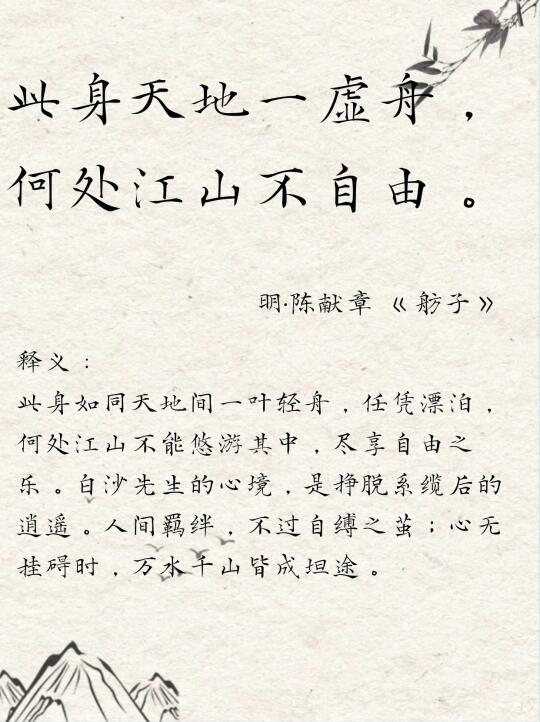 此身天地一虚舟，
何处江山不自由。
明·陈献章《舫子》
释义：
此身如同天地间一叶轻舟，任凭漂泊，
何处江山不能悠游其中，尽享自由之
乐。白沙先生的心境，是挣脱系缆后的
逍遥。人间羁绊，不过自缚之茧；心无
挂碍时，万水千山皆成坦途。